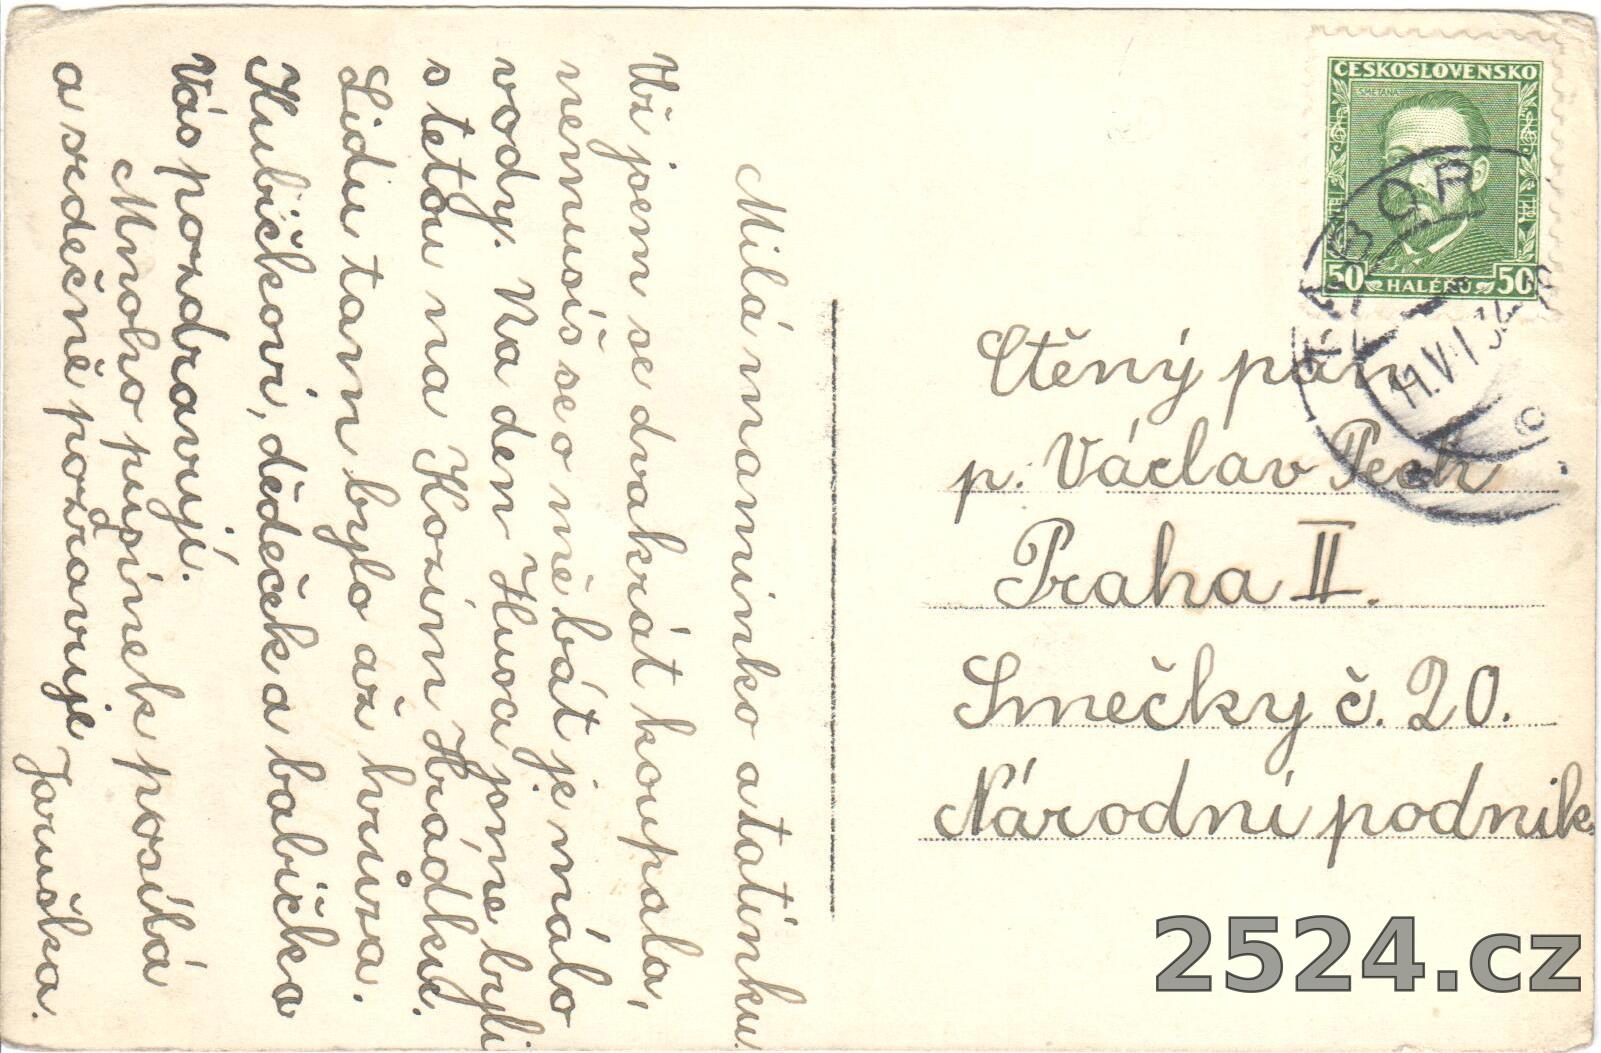 Milá maminko a tatínku
Už jsem se dvakrát koupala,
nemusíš se o mě bát je málo
vody. Na den Husa jsme byli
s tetou na Kozím Hrádku.
Lidu tam bylo až hrůza.
Kubíčkovi, dědeček a babička
Vás pozdravují.
Mnoho pusinek posílá
a srdečně pozdravuje Jaruška.
ČESKOSLOVENSKO
SMETANA
50 HALÉŘŮ 50
TÁBOR
11.VII.34
Ctěný pán
p. Václav Pech
Praha II.
Smečky č. 20.
Národní podnik.
2524.cz